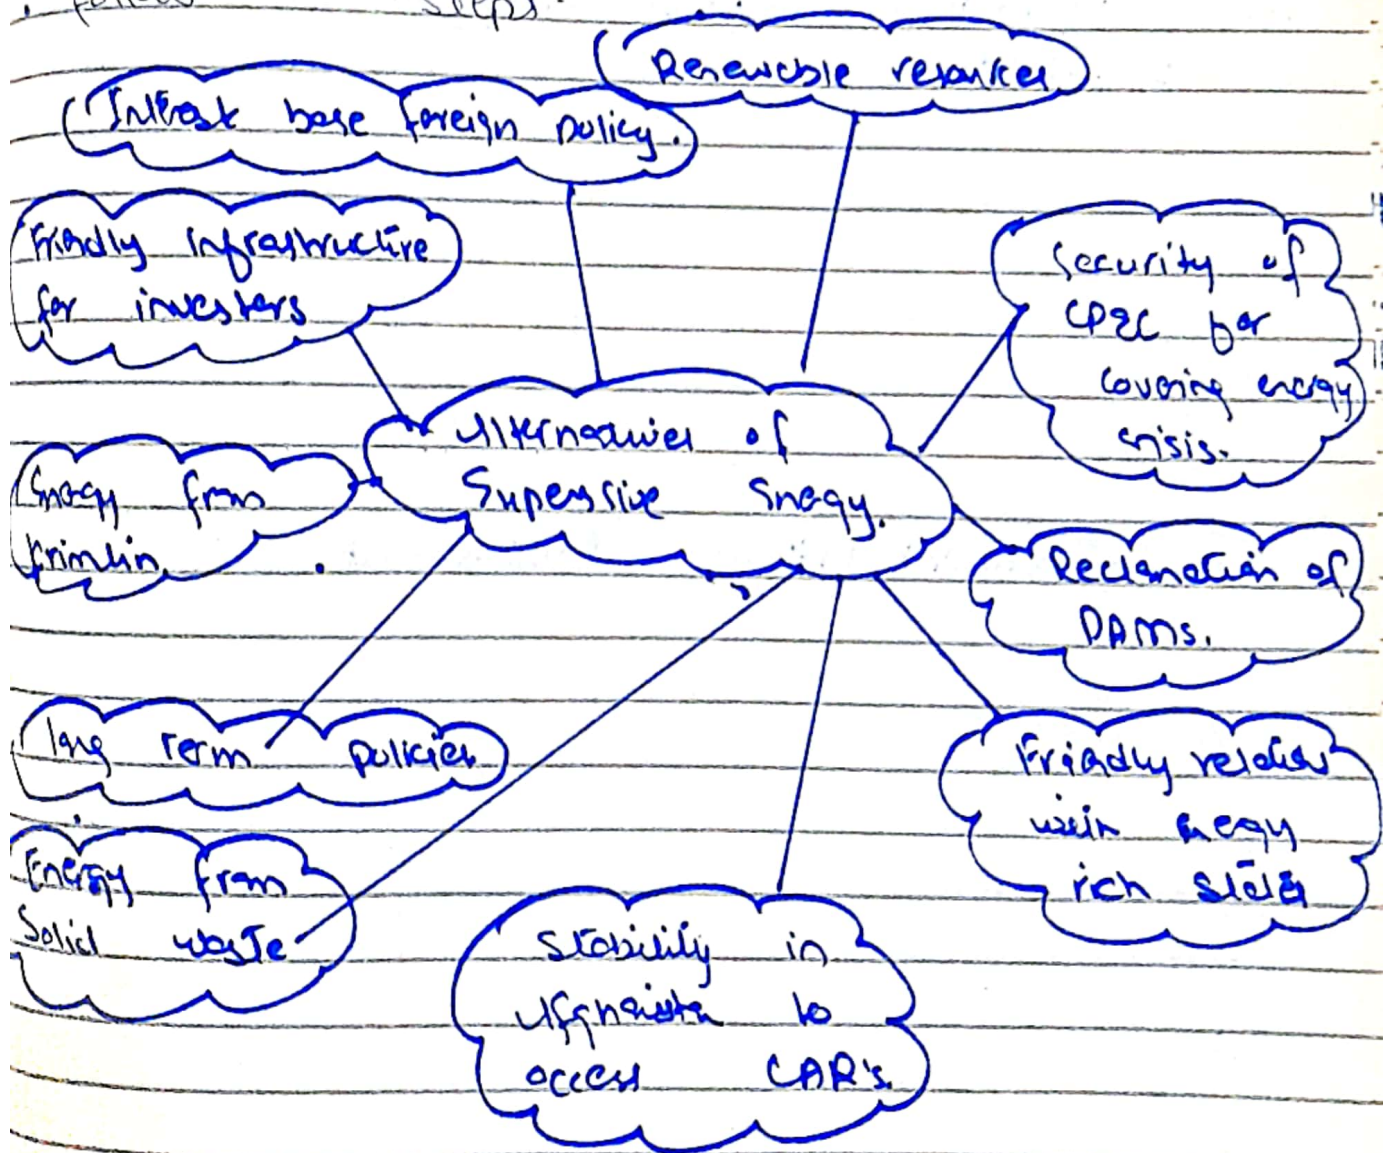 follow steps
Renewable resources
Intrest base foreign policy.
Friedly infrastructure
for investers
Security of
CPEC for
covering energy
crisis.
Alternatives of
Supenssive Enegy.
Enegy from
krimlin
Reclamation of
DAMs.
long term policies
Friedly relations
with enegy
rich states
Energy from
Solid waste
Stability in
Afghanistan to
access CAR's.